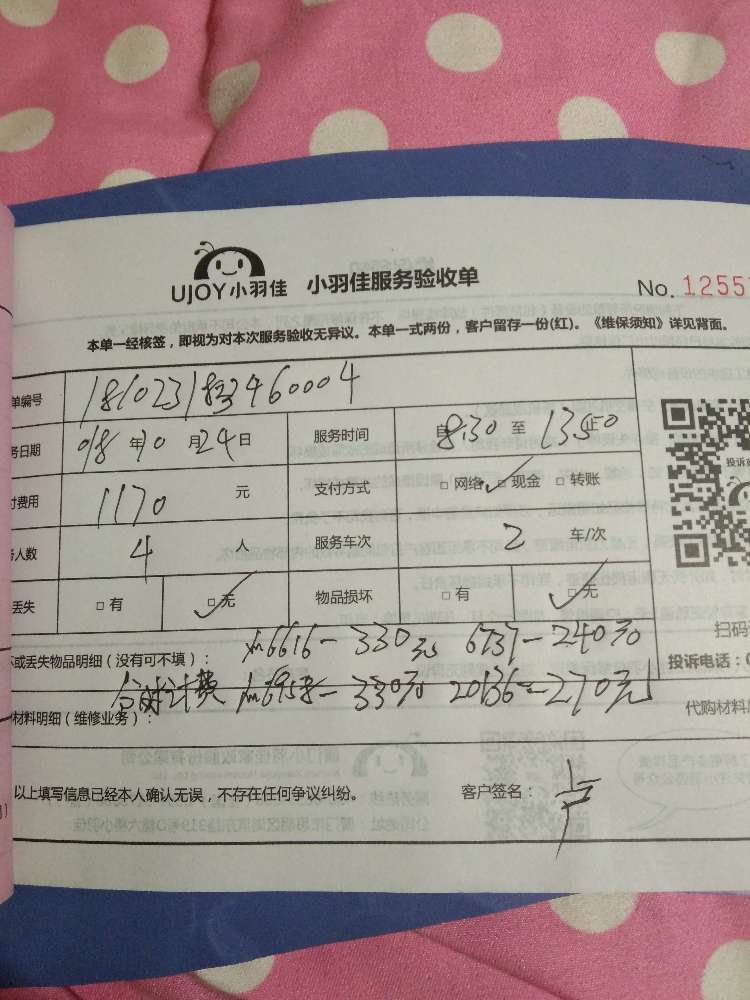 UJOY小羽佳 小羽佳服务验收单
No. 1255
本单一经核签，即视为对本次服务验收无异议。本单一式两份，客户留存一份(红)。《维保须知》详见背面。
单编号 181023183460004
务日期 018年10月24日 服务时间 自8:30至13:50止
付费用 1170元 支付方式 □网络 ✓□现金 □转账
务人数 4人 服务车次 2车/次
丢失 □有 ✓□无 物品损坏 □有 ✓□无
投诉
扫码
投诉电话：0
代购材料
坏或丢失物品明细（没有可不填）： 6616-330元 6737-240元
计费 330元 20136-270元
材料明细（维修业务）：
以上填写信息已经本人确认无误，不存在任何争议纠纷。 客户签名：